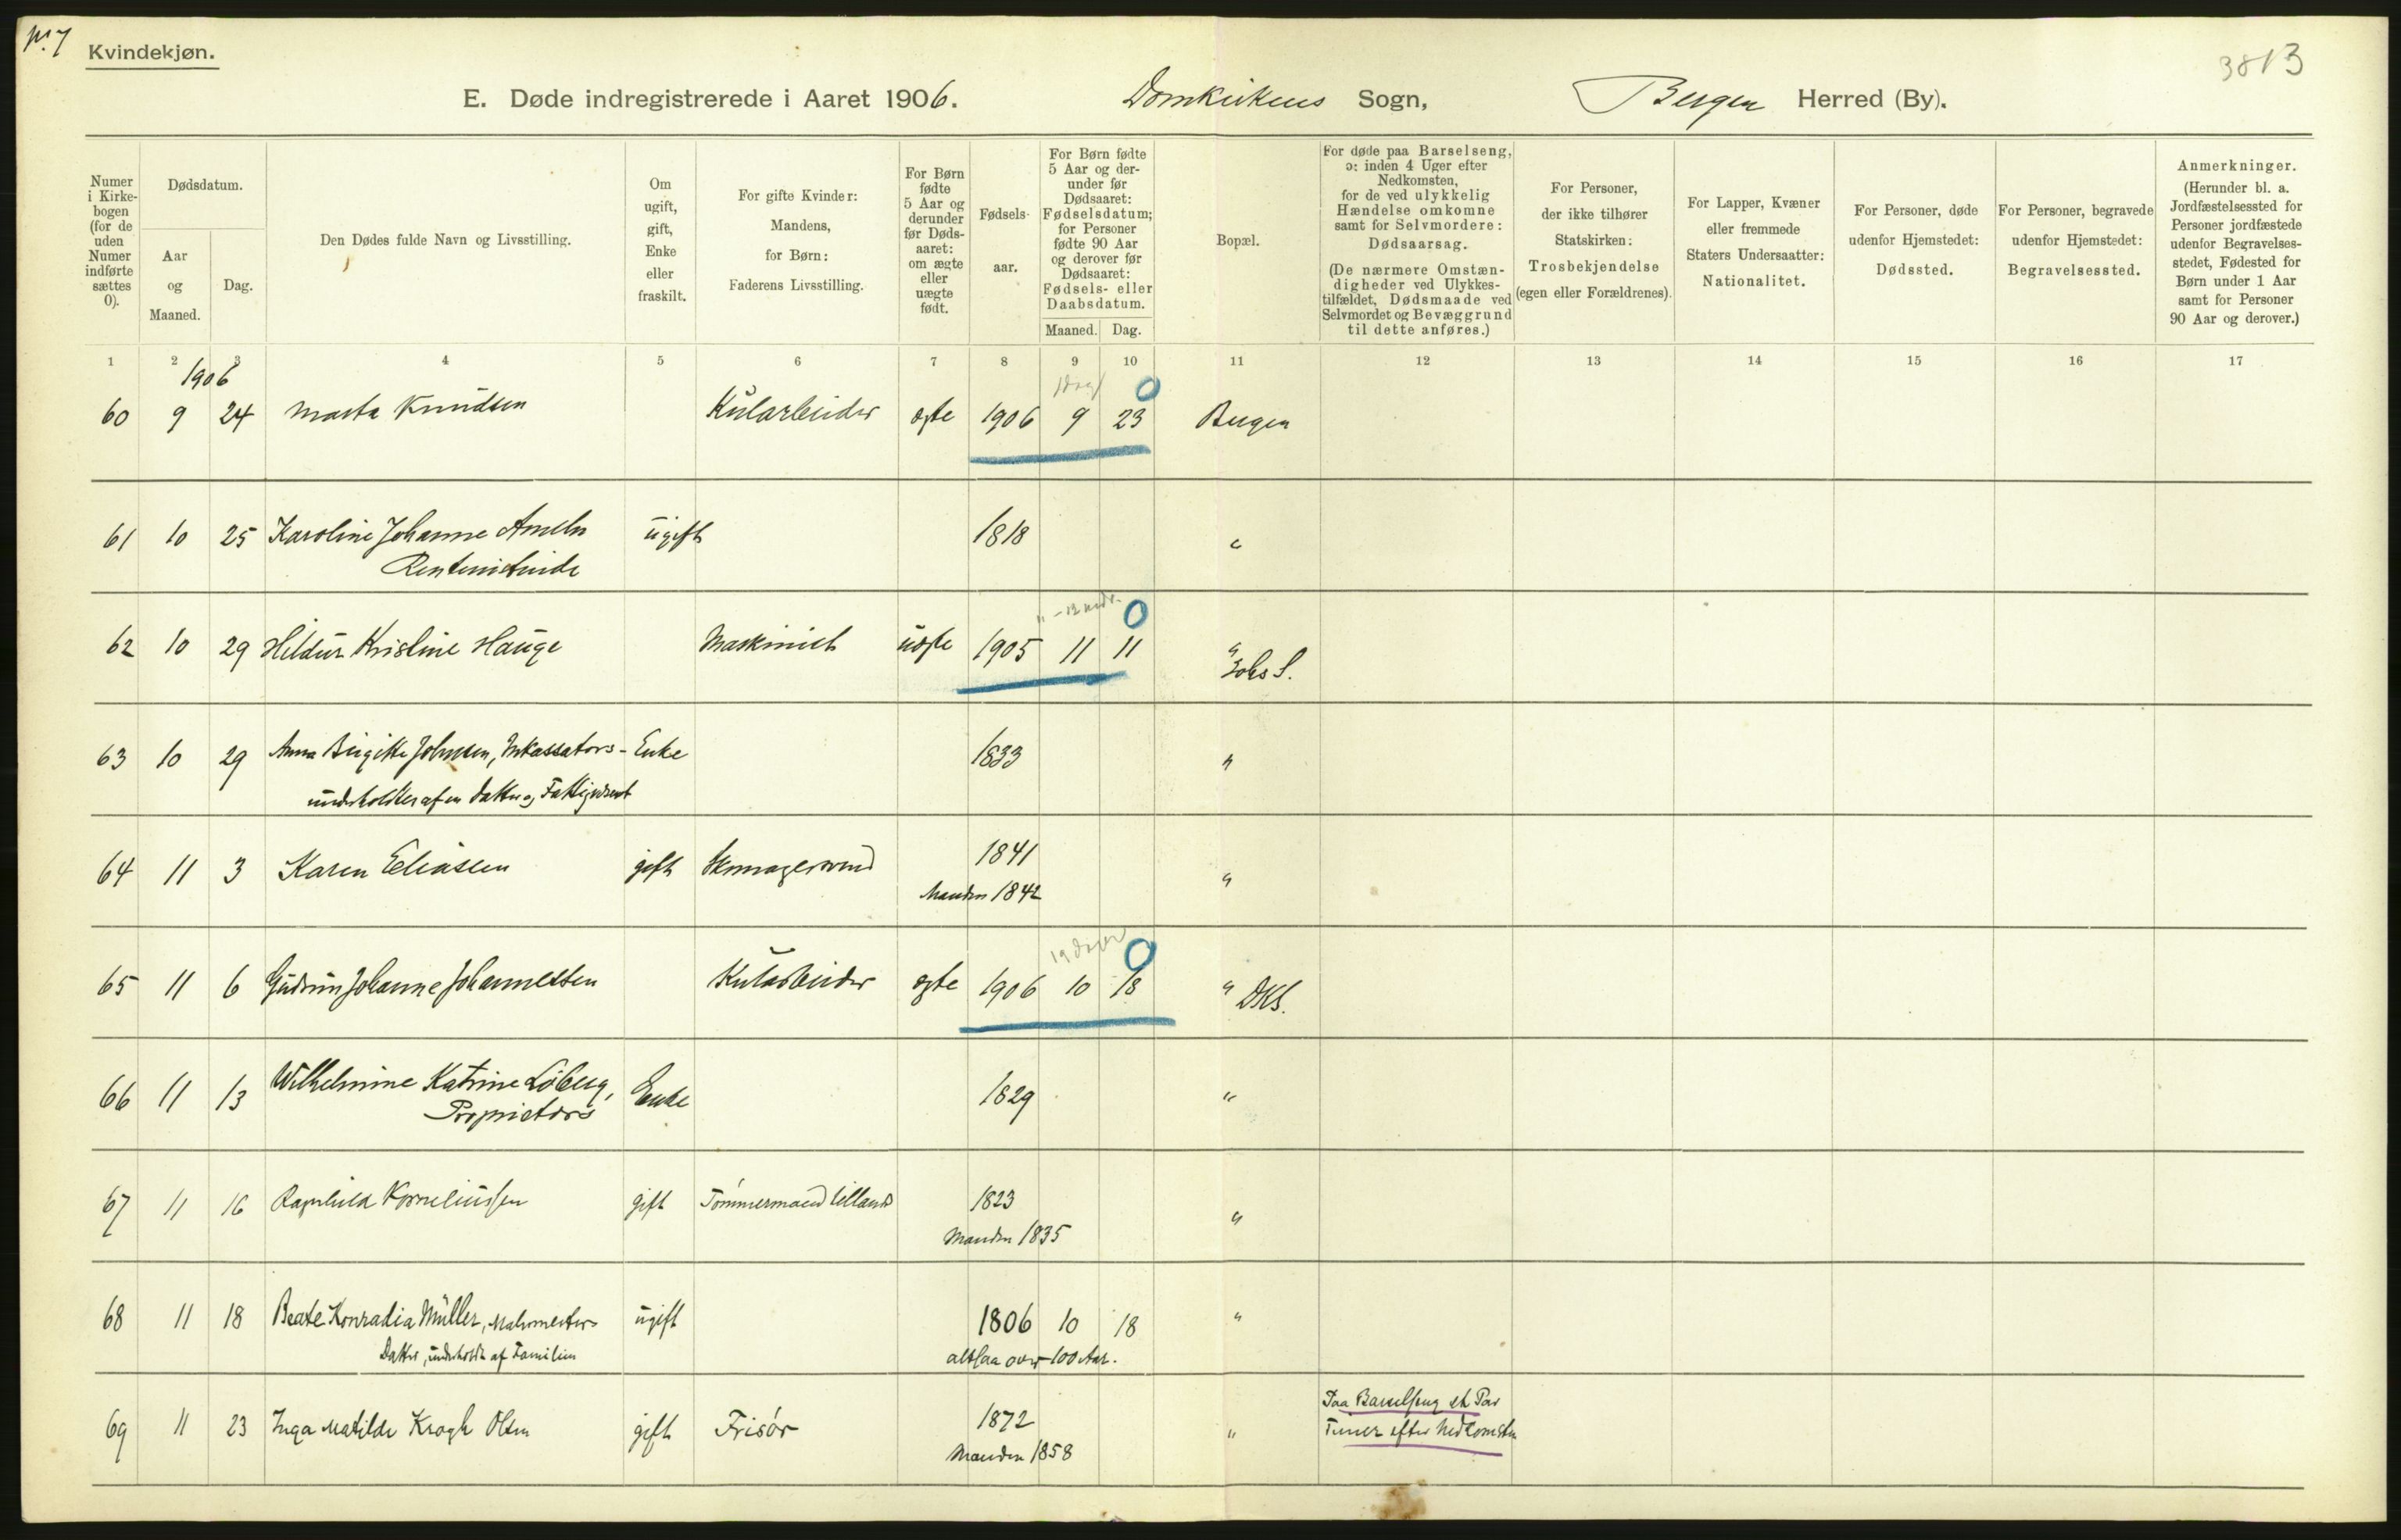 Kvindekjøn.
3813
E. Døde indregistrerede i Aaret 1906. Domkirkens Sogn, Bergen Herred (By).
Numer i Kirkebogen (for de uden Numer indførte sættes 0).
Dødsdatum.
Aar og Maaned.
Dag.
Den Dødes fulde Navn og Livsstilling.
Om ugift, gift, Enke eller fraskilt.
For gifte Kvinder: Mandens, for Børn: Faderens Livsstilling.
For Børn fødte 5 Aar og derunder før Dødsaaret: om ægte eller uægte født.
Fødselsaar.
For Børn fødte 5 Aar og derunder før Dødsaaret: Fødselsdatum; for Personer fødte 90 Aar og derover før Dødsaaret: Fødsels- eller Daabsdatum.
Maaned. Dag.
Bopæl.
For døde paa Barselseng, ɔ: inden 4 Uger efter Nedkomsten, for de ved ulykkelig Hændelse omkomne samt for Selvmordere: Dødsaarsag. (De nærmere Omstændigheder ved Ulykkestilfældet, Dødsmaade ved Selvmordet og Bevæggrund til dette anføres.)
For Personer, der ikke tilhører Statskirken: Trosbekjendelse (egen eller Forældrenes).
For Lapper, Kvæner eller fremmede Staters Undersaatter: Nationalitet.
For Personer, døde udenfor Hjemstedet: Dødssted.
For Personer, begravede udenfor Hjemstedet: Begravelsessted.
Anmerkninger. (Herunder bl. a. Jordfæstelsessted for Personer jordfæstede udenfor Begravelsesstedet, Fødested for Børn under 1 Aar samt for Personer 90 Aar og derover.)
1 2 3 4 5 6 7 8 9 10 11 12 13 14 15 16 17
1906
1 dag 0
60 9 24 Marta Knudsen Kularbeider ægte 1906 9 23 Bergen
61 10 25 Karoline Johanne Ameln ugift 1818 "
Rentenistinde
12 mdr. 0
62 10 29 Hildur Kristine Hauge Maskinist uægte 1905 11 11 "
63 10 29 Anna Birgitte Johnsen, Inkassators- Enke 1833 "
underholdtes af en Datter og Fattigvæsenet
64 11 3 Karen Eliasen gift Skomagersvend 1841 "
Manden 1842
19 dager 0
65 11 6 Gudrun Johanne Johannessen Kularbeider ægte 1906 10 18 " DKS.
66 11 13 Wilhelmine Katrine Löberg, Enke 1829 "
Proprietærs
67 11 16 Ragnhild Korneliussen gift Tømmermand tillands 1823 "
Manden 1835
68 11 18 Beate Konradia Müller, Malermesters ugift 1806 10 18 "
Datter, underholdt af Familien altsaa over 100 Aar.
Paa Barselseng et Par
69 11 23 Inga Matilde Krogh Olsen gift Frisør 1872 " Timer efter Nedkomsten
Manden 1858